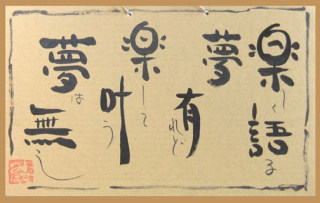 楽しく語る
夢有れど
楽して叶う
夢は無し